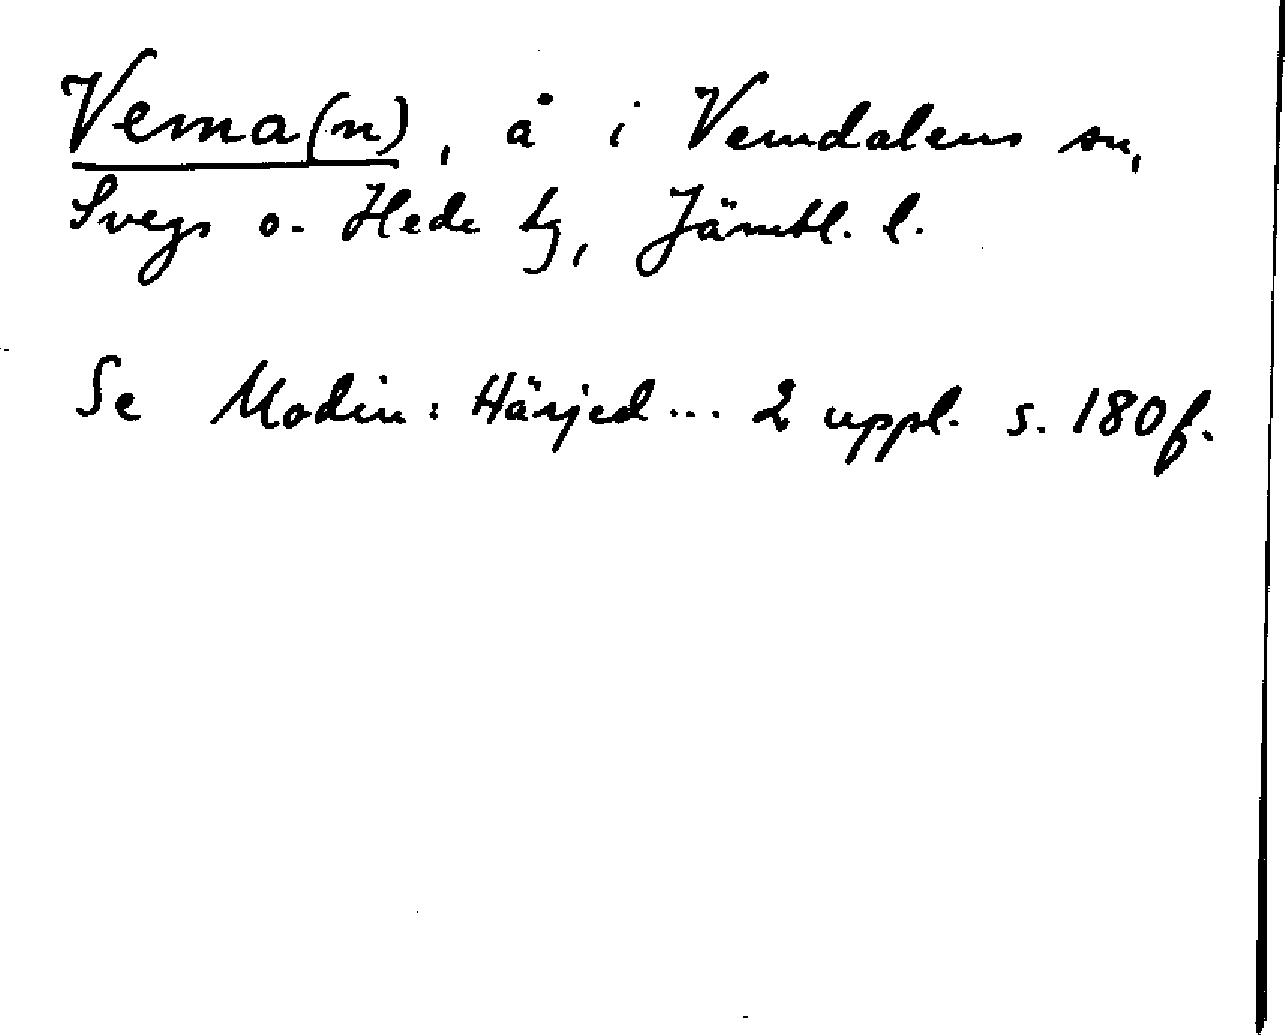 Vema(n), å i Vemdalens sn,
Svegs o. Hede tg, Jämtl. l.
Se Modin: Härjed... 2 uppl. s. 180 f.